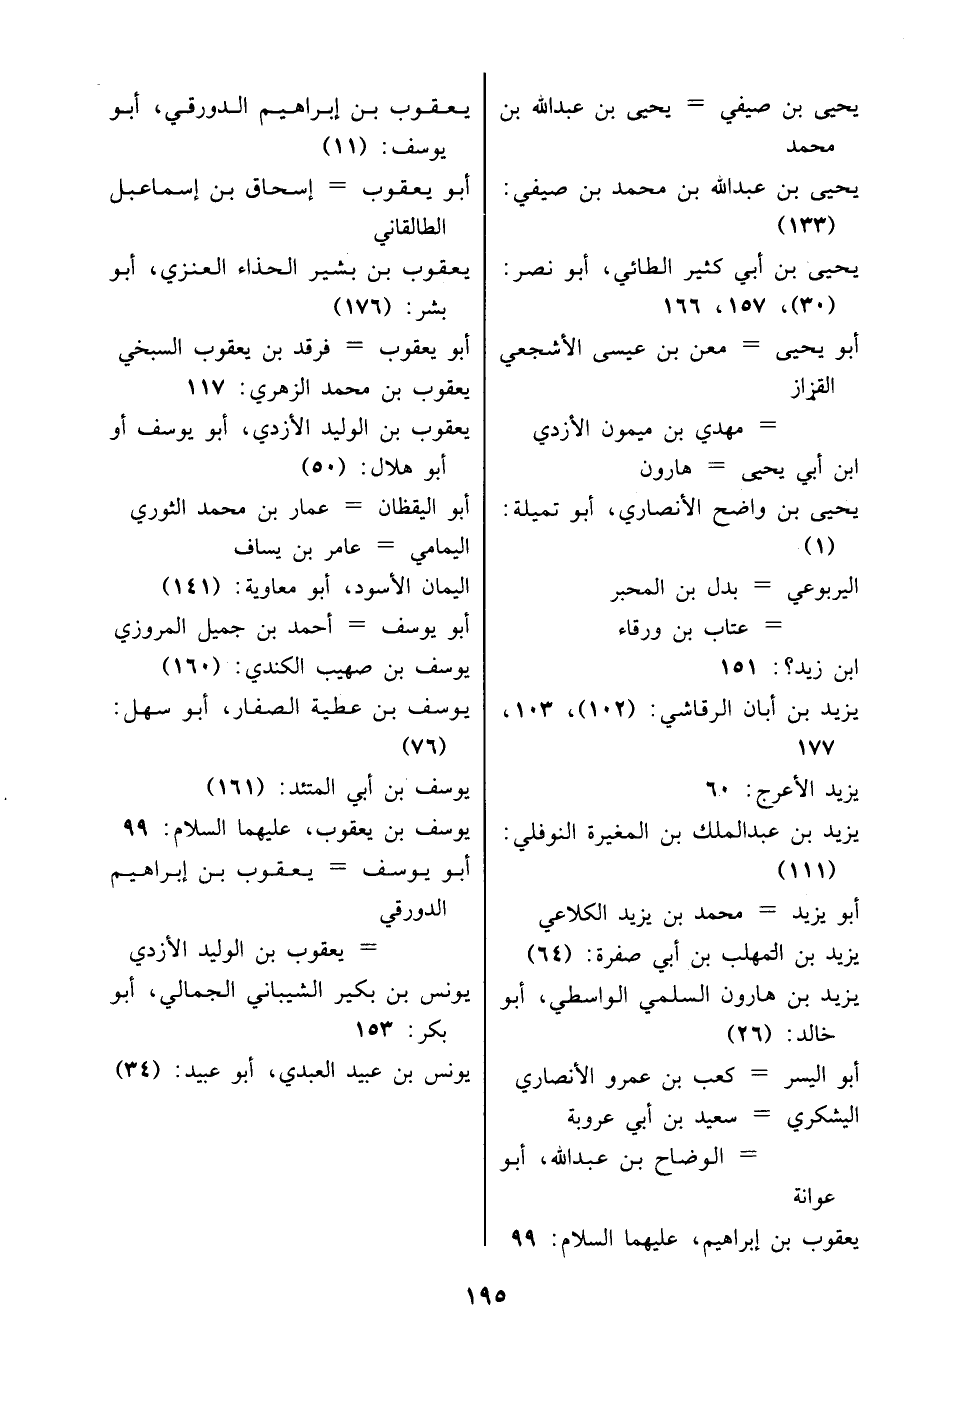 يحيى بن صيفي = يحيى بن عبدالله بن
محمد
يحيى بن عبدالله بن محمد بن صيفي:
(١٣٣)
يحيى بن أبي كثير الطائي، أبو نصر:
(٣٠)، ١٥٧، ١٦٦
أبو يحيى = معن بن عيسى الأشجعي
القزاز
= مهدي بن ميمون الأزدي
ابن أبي يحيى = هارون
يحيى بن واضح الأنصاري، أبو تميلة:
(١)
اليربوعي = بدل بن المحبر
= عتاب بن ورقاء
ابن زيد؟: ١٥١
يزيد بن أبان الرقاشي: (١٠٢)، ١٠٣،
١٧٧
يزيد الأعرج: ٦٠
يزيد بن عبدالملك بن المغيرة النوفلي:
(١١١)
أبو يزيد = محمد بن يزيد الكلاعي
يزيد بن المهلب بن أبي صفرة: (٦٤)
يزيد بن هارون السلمي الواسطي، أبو
خالد: (٢٦)
أبو اليسر = كعب بن عمرو الأنصاري
اليشكري = سعيد بن أبي عروبة
= الوضاح بن عبدالله، أبو
عوانة
يعقوب بن إبراهيم، عليهما السلام: ٩٩
يعقوب بن إبراهيم الدورقي، أبو
يوسف: (١١)
أبو يعقوب = إسحاق بن إسماعيل
الطالقاني
يعقوب بن بشير الحذاء العنزي، أبو
بشر: (١٧٦)
أبو يعقوب = فرقد بن يعقوب السبخي
يعقوب بن محمد الزهري: ١١٧
يعقوب بن الوليد الأزدي، أبو يوسف أو
أبو هلال: (٥٠)
أبو اليقظان = عمار بن محمد الثوري
اليمامي = عامر بن يساف
اليمان الأسود، أبو معاوية: (١٤١)
أبو يوسف = أحمد بن جميل المروزي
يوسف بن صهيب الكندي: (١٦٠)
يوسف بن عطية الصفار، أبو سهل:
(٧٦)
يوسف بن أبي المتئد: (١٦١)
يوسف بن يعقوب، عليهما السلام: ٩٩
أبو يوسف = يعقوب بن إبراهيم
الدورقي
= يعقوب بن الوليد الأزدي
يونس بن بكير الشيباني الجمالي، أبو
بكر: ١٥٣
يونس بن عبيد العبدي، أبو عبيد: (٣٤)
١٩٥